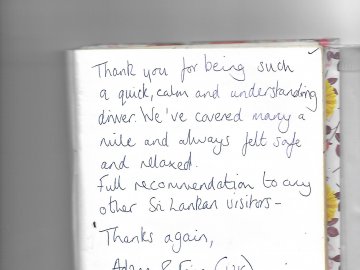 Thank you for being such
a quick, calm and understanding
driver. We've covered many a
mile and always felt safe
and relaxed.
Full recommendation to any
other Sri Lankan visitors -
Thanks again,
(UK)